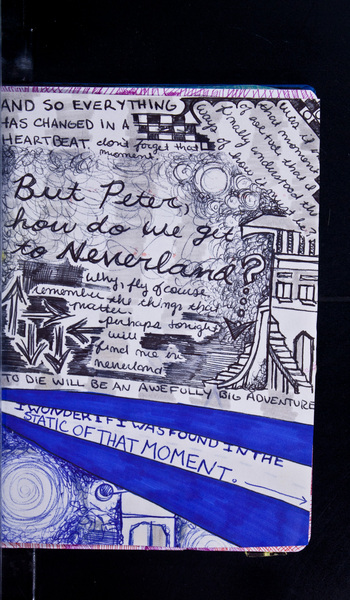 AND SO EVERYTHING
HAS CHANGED IN A
HEARTBEAT. don't forget that
moment
But Peter,
how do we get
to Neverland?
Why, fly of course.
remember the things that
matter.
perhaps tonight
will
find me in
neverland.
TO DIE WILL BE AN AWEFULLY BIG ADVENTURE
I WONDER IF I WAS FOUND IN THE
STATIC OF THAT MOMENT.